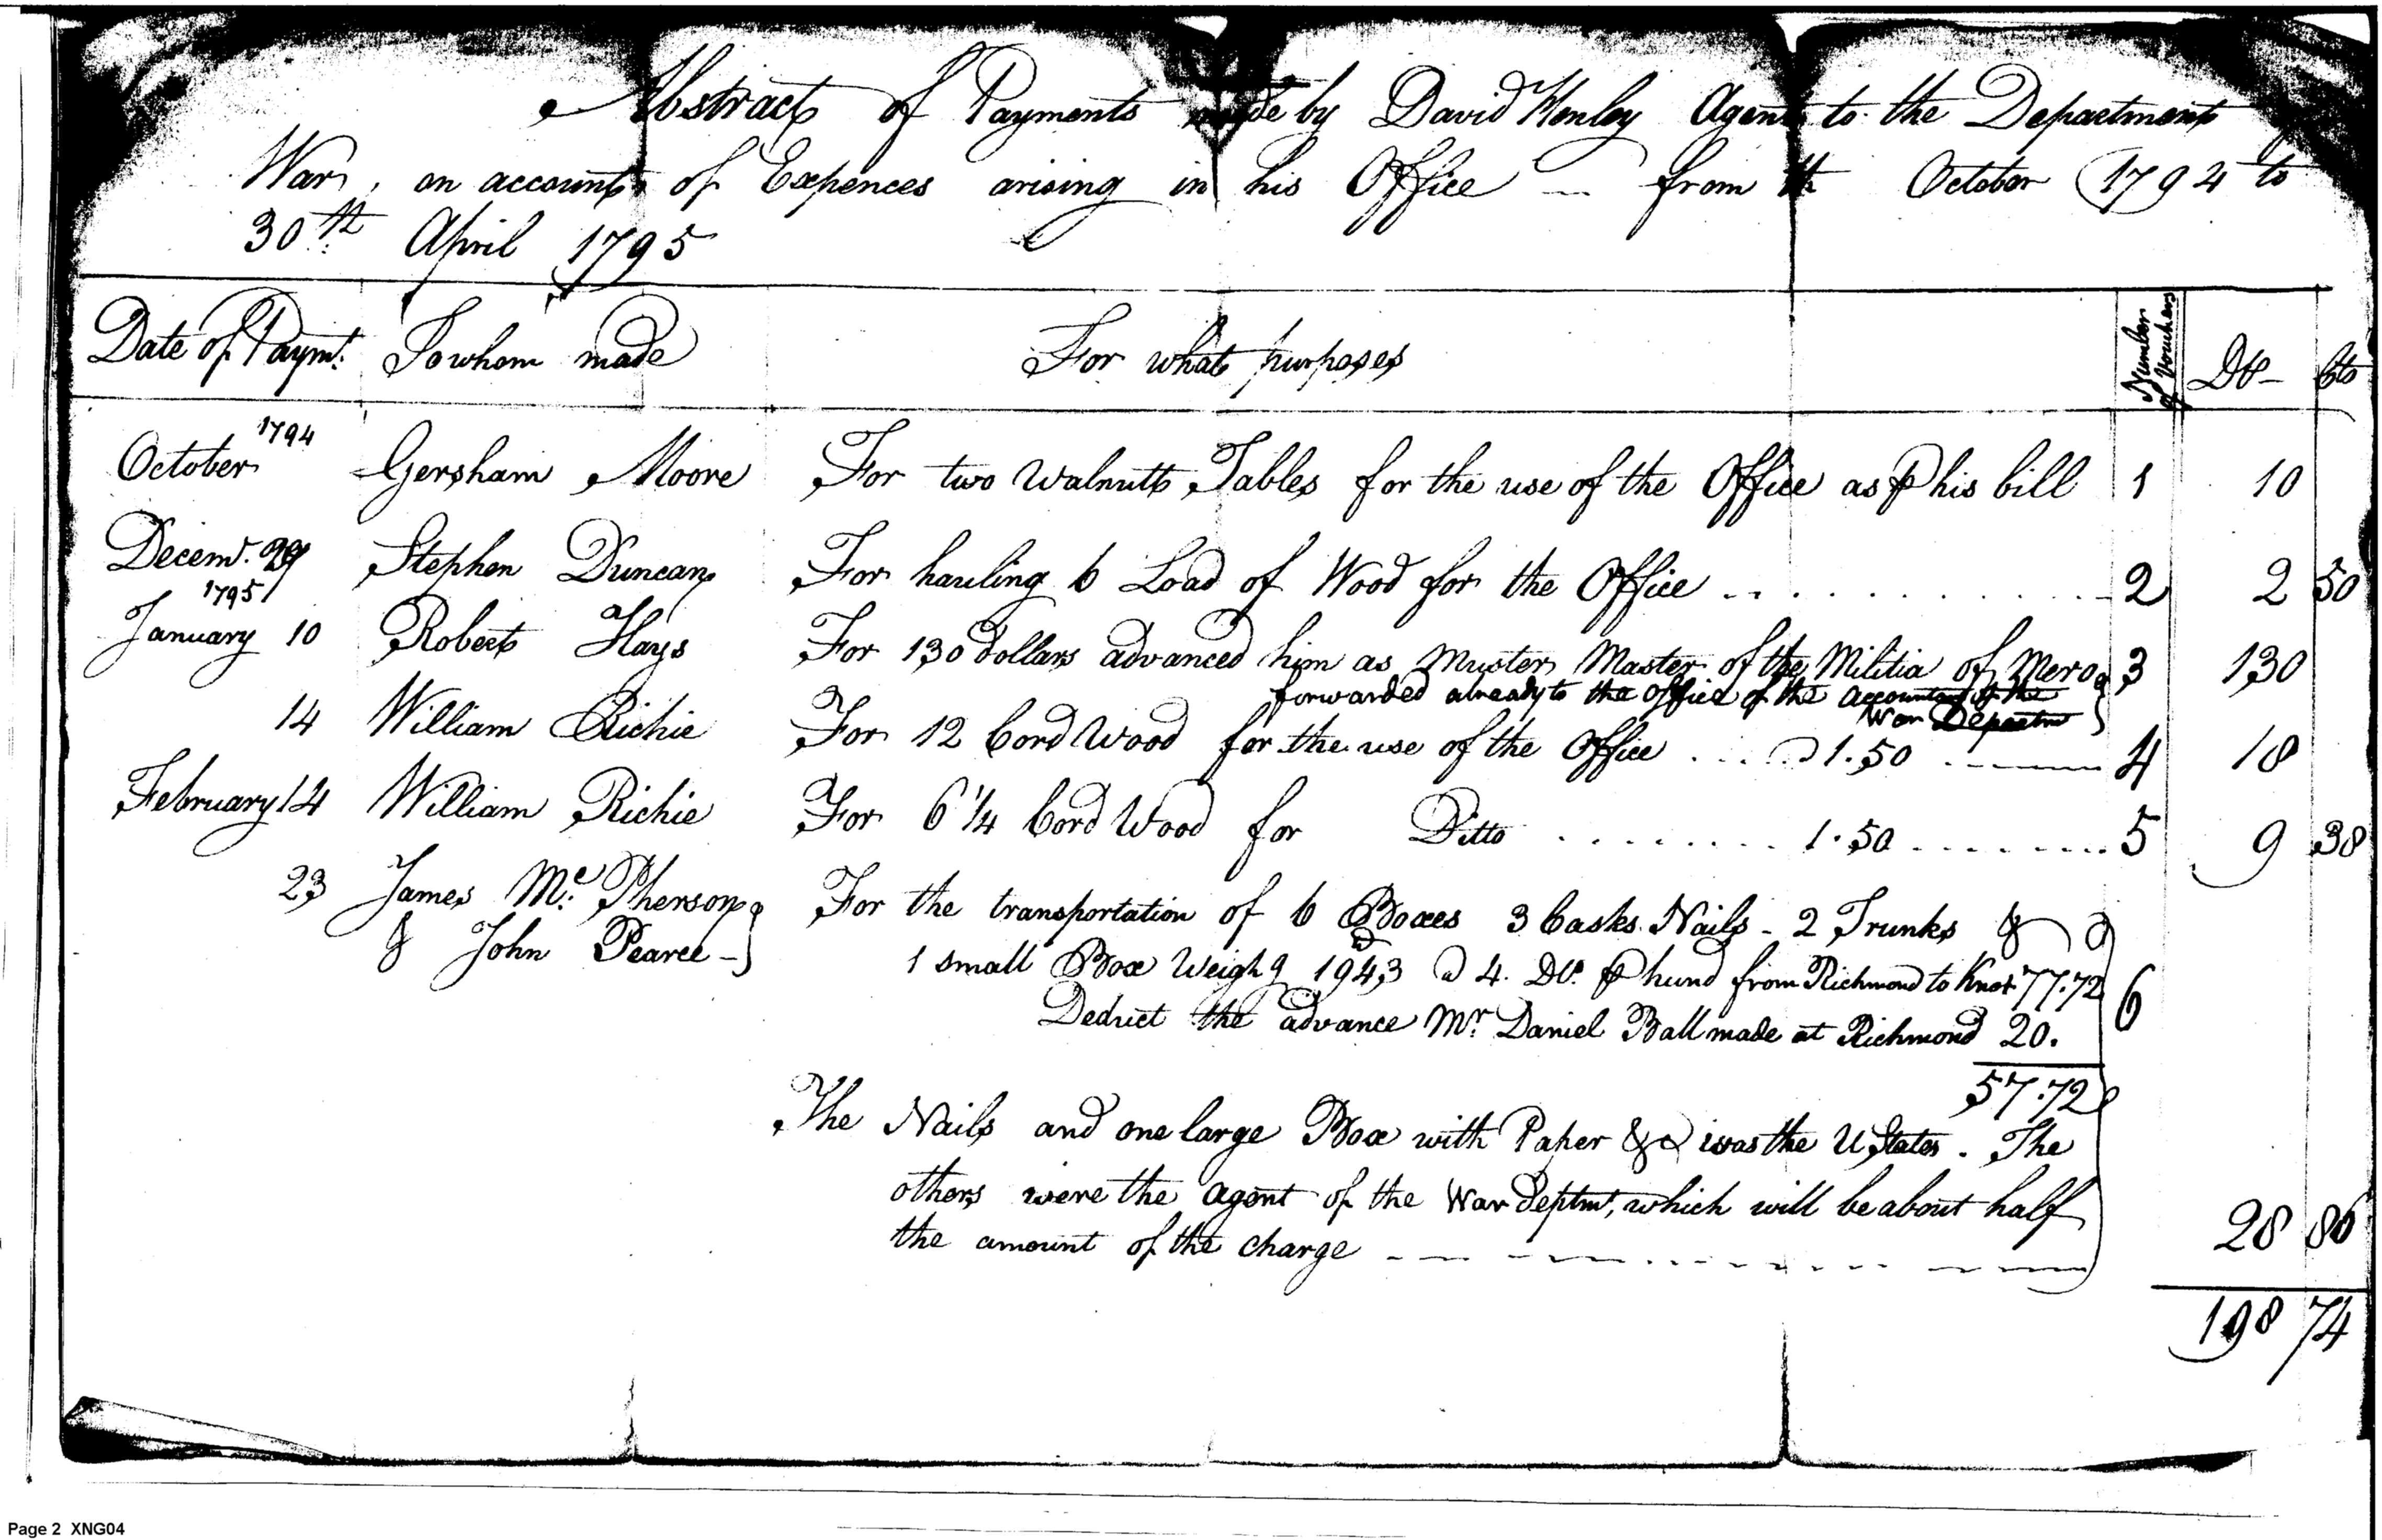 Abstract of Payments made by David Henley Agent to the Department
War, on account of Expences arising in his Office from October 1794 to
30th April 1795
Date of Paymt. To whom made For what purposes Number of Vouchers Drs Cts
October 1794 Gersham Moore For two Walnutt Tables for the use of the Office as ⅌ his bill 1 10
Decemr. 29 Stephen Duncan For hauling 6 Load of Wood for the Office 2 2 50
1795
January 10 Robert Hays For 130 dollars advanced him as Muster Master of the Militia of Mero 3 130
forwarded already to the office of the accountant of the
War Departmt
14 William Richie For 12 Cord Wood for the use of the Office 1.50 4 18
February 14 William Richie For 6 1/4 Cord Wood for Ditto 1.50 5 9 38
23 James Mc. Pherson For the transportation of 6 Boxes 3 Casks Nails - 2 Trunks &
& John Pearce 1 small Box Weighg 1943 @ 4. Drs. ⅌ hund from Richmond to Knox 77.72 6
Deduct the advance Mr. Daniel Ball made at Richmond 20.
57.72
The Nails and one large Box with Paper &c was the U States. The
others were the agent of the War deptmt, which will be about half
the amount of the charge 28 86
198 74
Page 2 XNG04